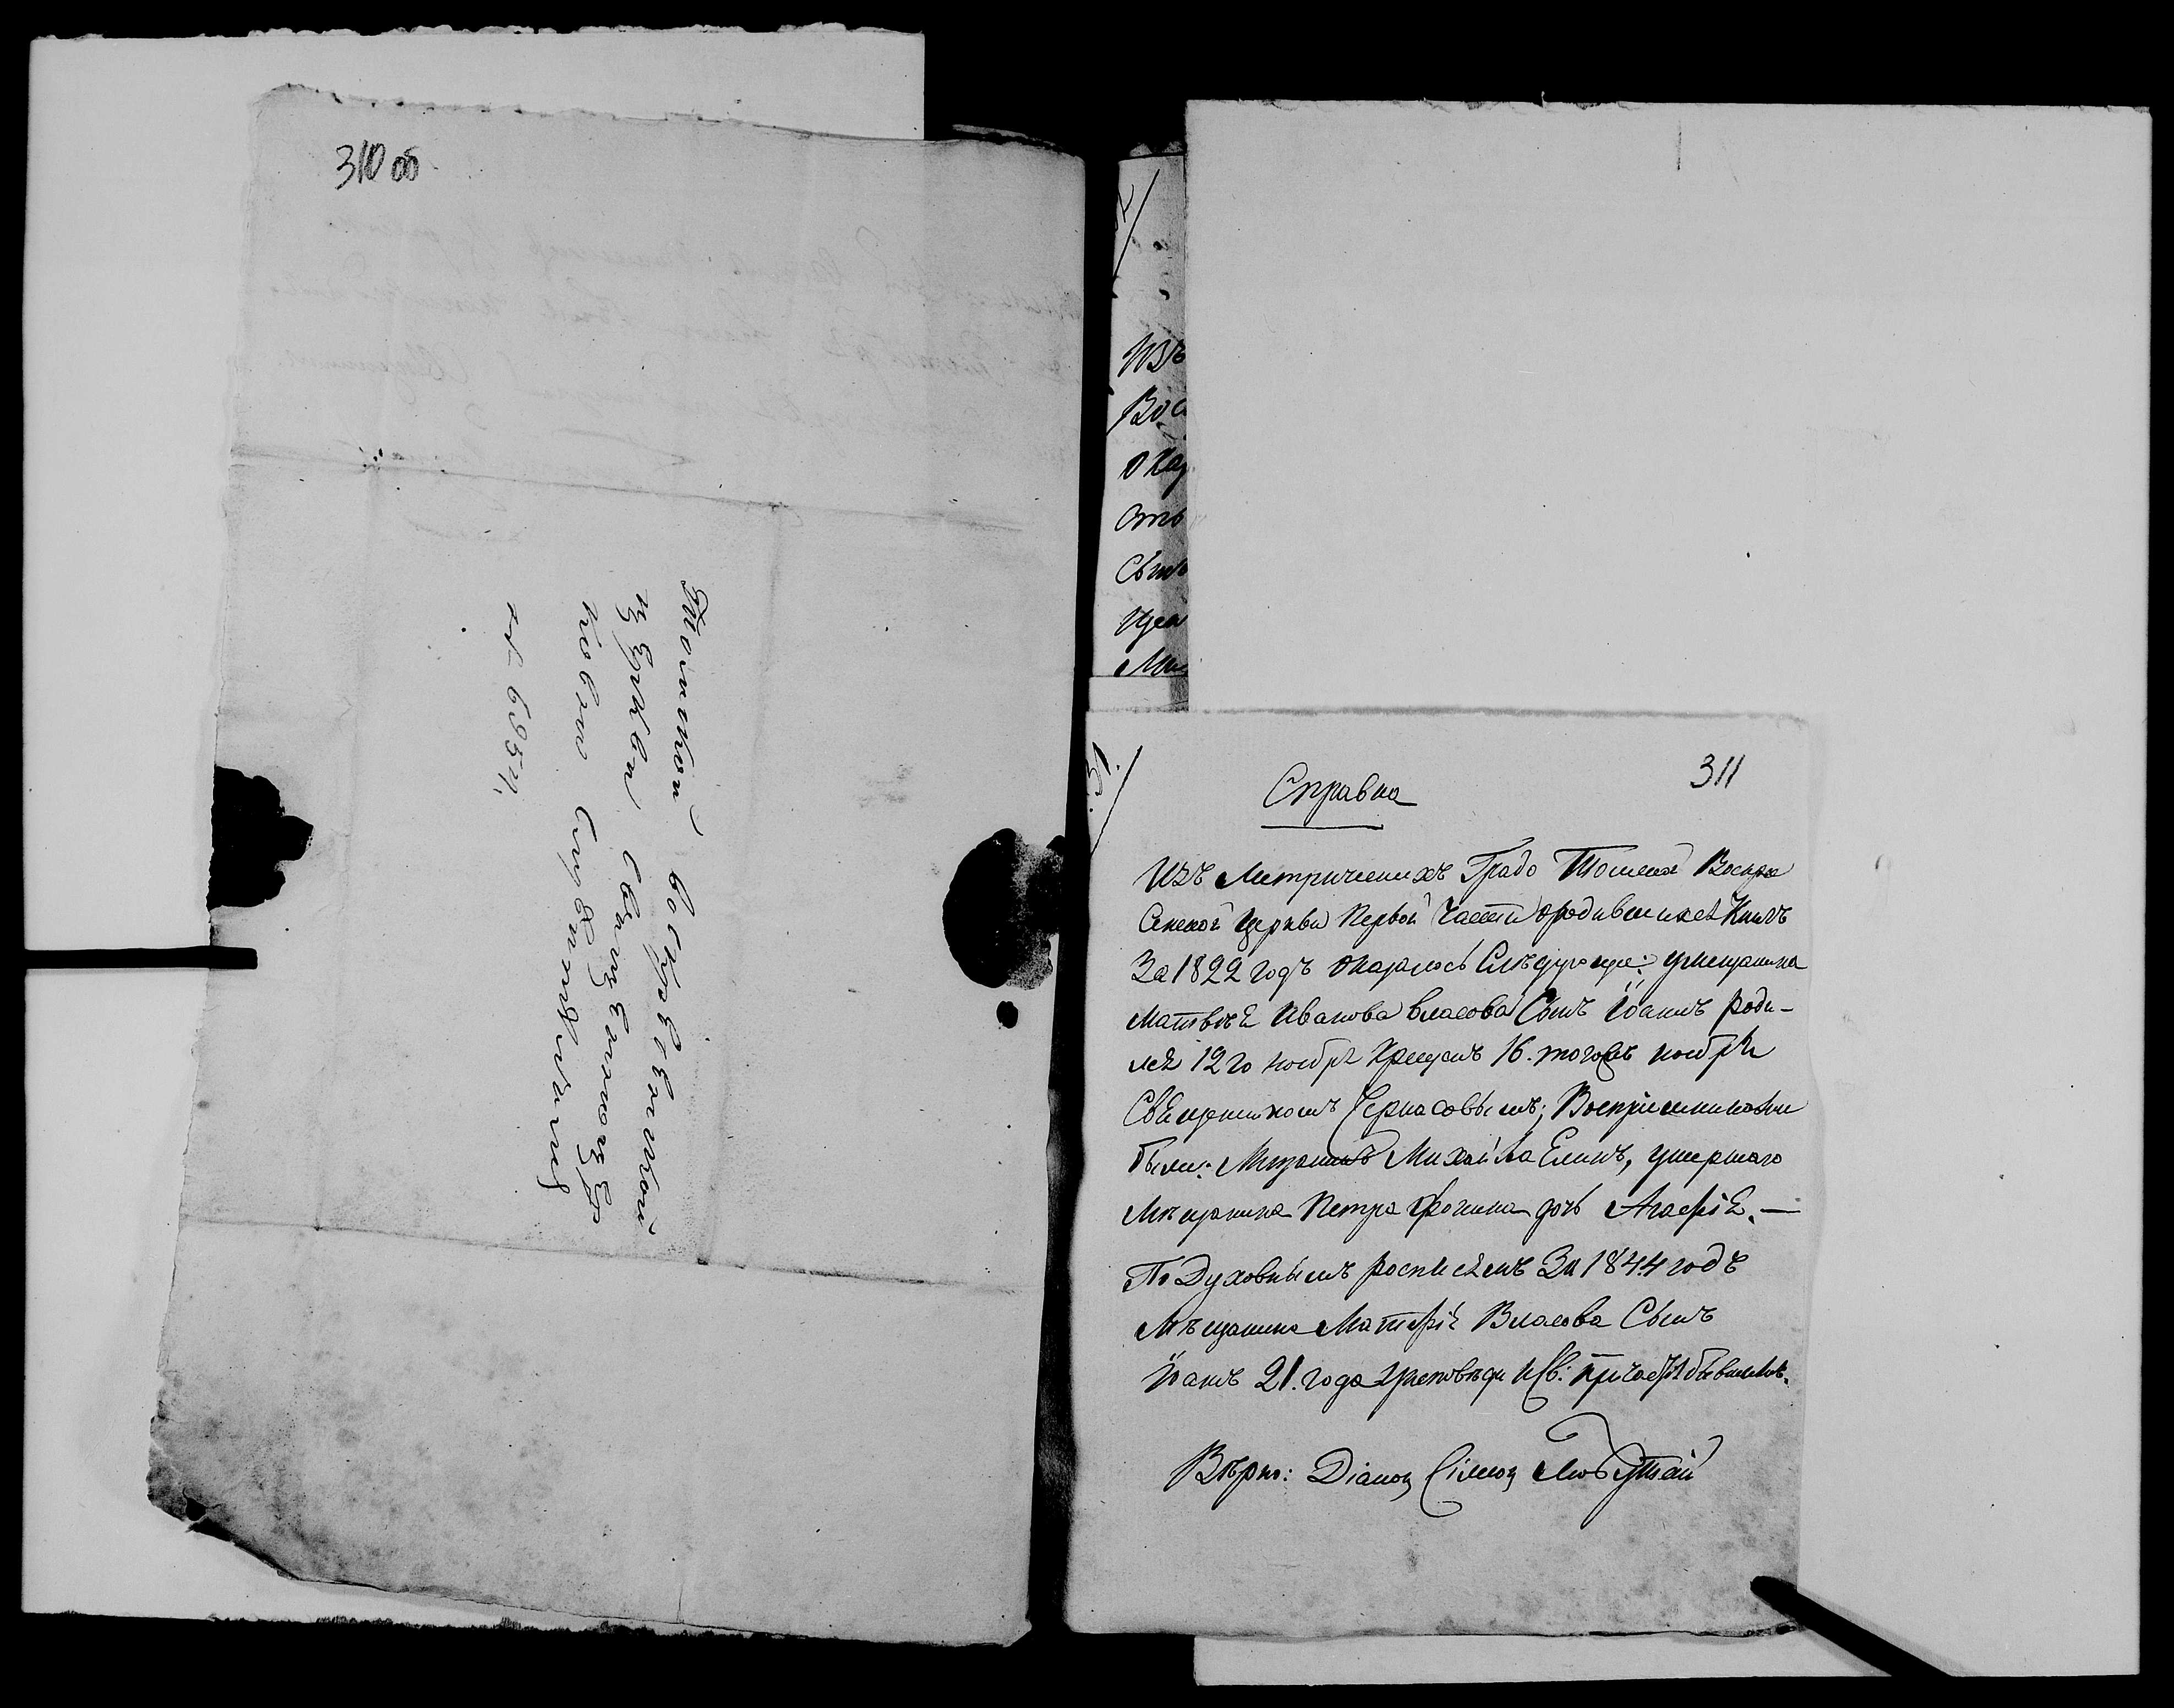 310 об
Томской Воскресенской
церкви Священноцер
ковно Служителямъ
№ 6954,
Изъ
Вос
Ока
Отъ
Сын
Цен
Ми
311
Справка
Изъ Метрическихъ Градо Томской Воскре
Сенской Церкви Первой Части о родившихся Книгъ
За 1822 годъ Оказалось Следующее: у мещанина
Матвея Иванова Власова Сынъ Іоаннъ роди-
лся 12 го ноября Крещенъ 16. того жъ ноября
Священникомъ Черкасовымъ; Восприемниками
были: Мещанинъ Михайла Елинъ, умершаго
Мещанина Петра Фокина дочь Агафія. —
По Духовнымъ росписямъ За 1844 годъ
Мѣщанина Матфія Власова Сынъ
Іоанъ 21. года у исповѣди и Св: причастія бывшимъ.
Вѣрно: Діаконъ Сімеонъ